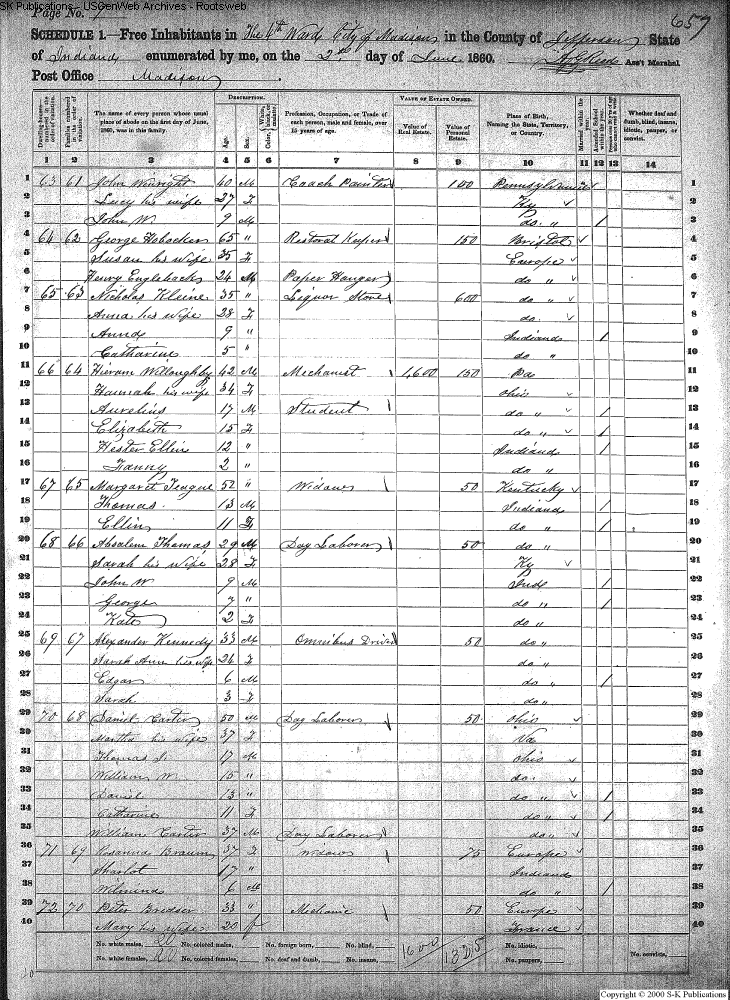 SK Publications - USGenWeb Archives - Rootsweb
Page No. 1
657
SCHEDULE 1.—Free Inhabitants in The 4th Ward City of Madison in the County of Jefferson State
of Indiana enumerated by me, on the 2nd day of June 1860. Ass't Marshal
Post Office Madison
Dwelling-houses—numbered in the order of visitation.
Families numbered in the order of visitation.
The name of every person whose usual place of abode on the first day of June, 1860, was in this family.
DESCRIPTION.
Age.
Sex.
Color, White, black, or mulatto.
Profession, Occupation, or Trade of each person, male and female, over 15 years of age.
VALUE OF ESTATE OWNED.
Value of Real Estate.
Value of Personal Estate.
Place of Birth, Naming the State, Territory, or Country.
Married within the year.
Attended School within the year.
Whether deaf and dumb, blind, insane, idiotic, pauper, or convict.
1 2 3 4 5 6 7 8 9 10 11 12 13 14
1 63 61 John 40 M Coach Painter 100 Pennsylvania 1
2 Lucy his wife 27 F Ky 2
3 John W. 9 M do " / 3
4 64 62 George Hobacker 65 " Restorat Keeper 150 Bristol 4
5 Susan his wife 35 F Europe 5
6 Henry Engleback 24 M Paper Hanger do " 6
7 65 63 Nicholas Kleine 35 " Liquor Store 600 do " 7
8 Anna his wife 28 F do 8
9 9 " Indiana / 9
10 Catharine 5 " do " 10
11 66 64 Hieram Willoughby 42 M Mechanist 1,600 150 Pa 11
12 Hannah his wife 34 F Ohio 12
13 Aurelius 17 M Student do " / 13
14 Elizabeth 15 F do " / 14
15 Hester Ellin 12 " Indiana / 15
16 Fanny 2 " do " 16
17 67 65 Margaret Teague 52 " Widow 50 Kentucky 17
18 Thomas 13 M Indiana / 18
19 Ellin 11 F do " / 19
20 68 66 Absalem Thomas 29 M Day Laborer 50 do " 20
21 Sarah his wife 28 F Ky 21
22 John W 9 M Ind / 22
23 George 7 " do " / 23
24 Kate 2 F do " 24
25 69 67 Alexander Kennedy 33 M Omnibus Driver 50 do " 25
26 Sarah Ann his wife 26 F do " 26
27 Edgar 6 M do " / 27
28 Sarah 3 F do " 28
29 70 68 Daniel Carter 50 M Day Laborer 50 Ohio 29
30 Martha his wife 37 F Va 30
31 Thomas 17 M Ohio 31
32 William W. 15 " do " 32
33 Daniel 13 " do " / 33
34 Catharine 11 F do " / 34
35 William Carter 37 M Day Laborer do " 35
36 71 69 Rosanna Braum 37 F Widow 75 Europe 36
37 Sharlot 17 " Indiana 37
38 6 M do " / 38
39 72 70 Peter 33 " Mechanic 50 Europe 39
40 Mary his wife 20 f France 40
No. white males, 20 No. colored males, No. foreign born, No. blind, 1600 1325 No. idiotic,
No. white females, 20 No. colored females, No. deaf and dumb, No. insane, No. paupers, No. convicts,
Copyright © 2000 S-K Publications